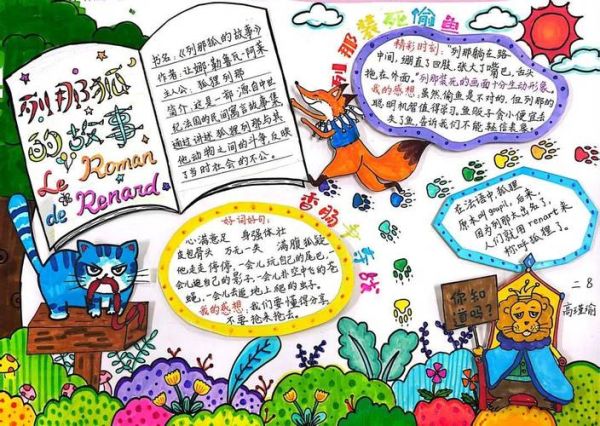 列那狐
的故事
Le Roman
de Renard
书名:《列那狐的故事》
作者:让娜·勒鲁瓦-阿莱
主人公:狐狸列那
简介:这是一部源自中世
纪法国的民间寓言故事集
通过讲述狐狸列那与其
他动物之间的斗争,反映
了当时社会的不公。
列那装死偷鱼
精彩时刻:“列那躺在路
中间,绷直了四肢,张大了嘴巴,舌头
拖在外面。”列那装死的画面十分生动形象。
我的感想:虽然偷鱼是不对的,但列那的
聪明机智值得学习。鱼贩子贪小便宜丢
失了鱼,告诉我们不能轻信表象。
香肠
好词好句:
心满意足 身强体壮
皮包骨头 万无一失 满腹狐疑
他走走停停,一会儿玩自己的尾巴,一
会儿追自己的影子,一会儿扑空中飞的苍
蝇,一会儿去逗地上爬的虫子。
我的感想:我们要懂得分享,
不要抢来抢去。
在法语中,狐狸
原本叫goupil,后来,
因为列那太出名了,
人们就用renart来
称呼狐狸了。
你知
道吗?
二8
高瑾瑜